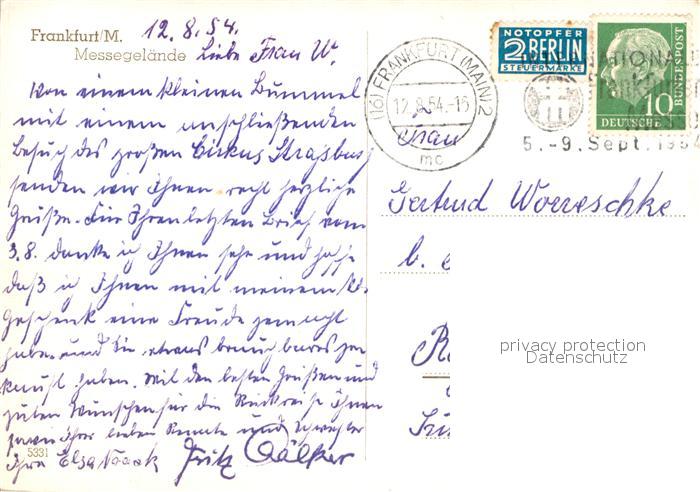 Frankfurt/M.
Messegelände
12.8.54.
Liebe Frau W.
Von einem kleinen Bummel
mit einem anschließenden
Besuch des großen Cirkus Strassburg
senden wir Ihnen recht herzliche
Grüße. Für Ihren letzten Brief vom
3.8. danke ich Ihnen sehr und hoffe
daß ich Ihnen mit meinem
Geschenk eine Freude gemacht
habe und Sie etwas brauchbares ge-
kauft haben. Mit den besten Grüßen und
guten Wünschen für die Rückreise Ihnen
sowie Ihrer lieben Renate und Schwester
Ihre Elsa Noack Fritz Völker
5331
NOTOPFER
2 BERLIN
STEUERMARKE
(16) FRANKFURT (MAIN) 2
12.8.54.-15
mc
INTERNATIONALE
5.-9.Sept.1954
DEUTSCHE BUNDESPOST
10
Frau
Gertrud Worreschke
b.
privacy protection
Datenschutz